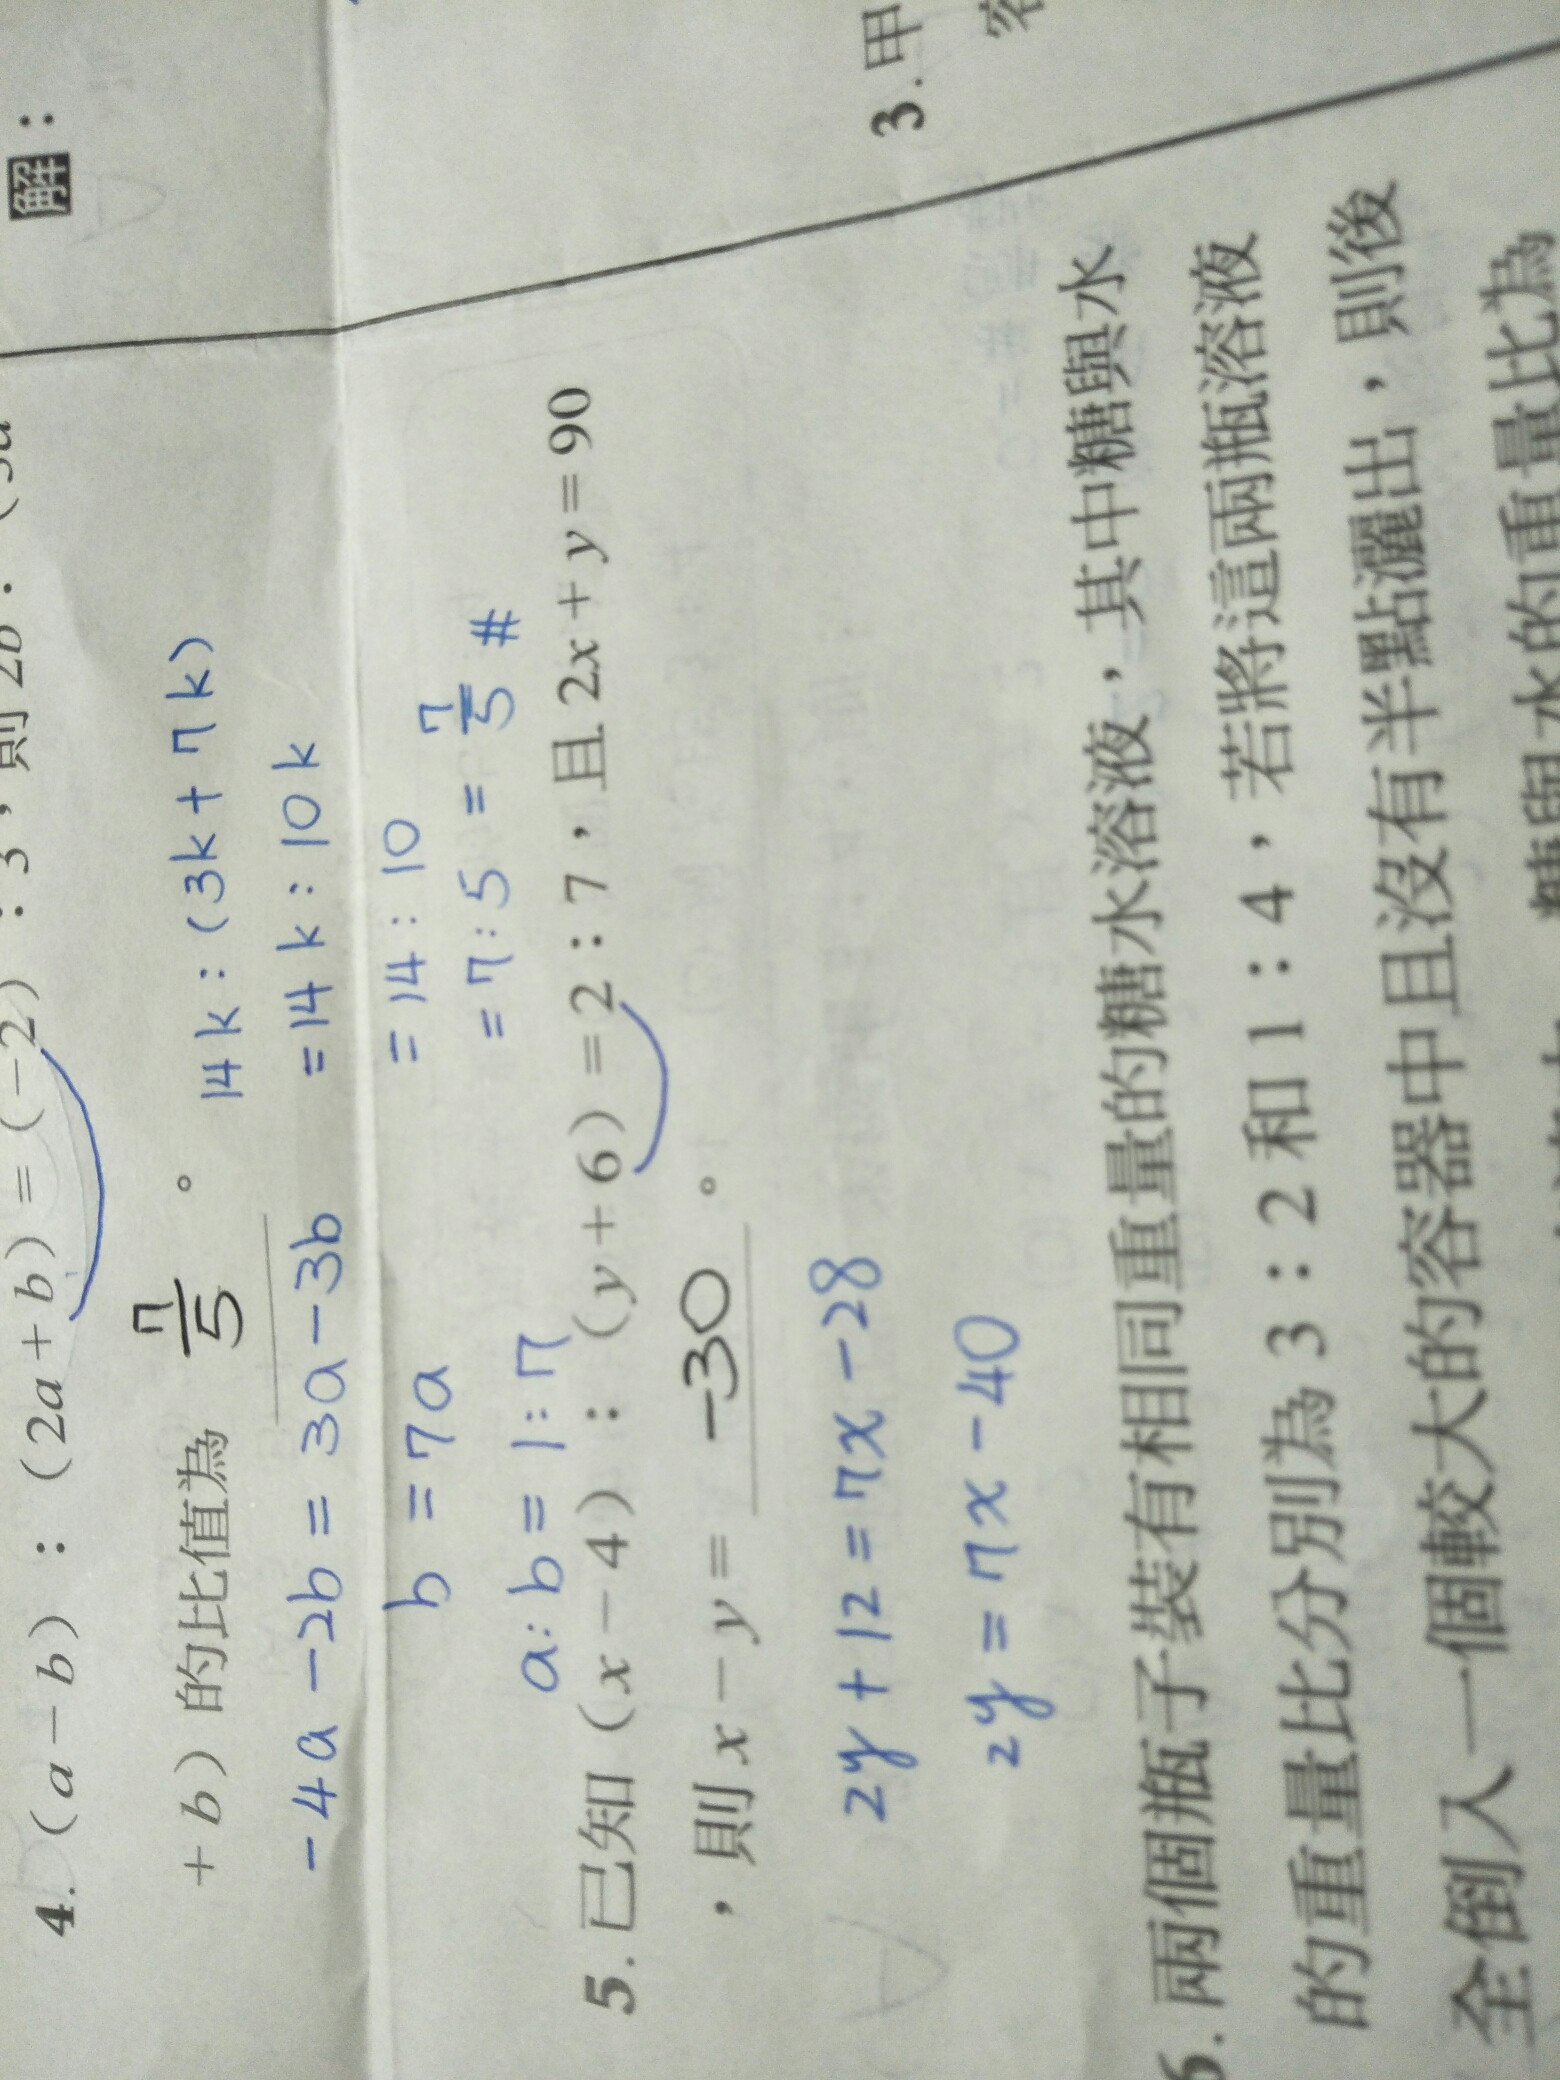 解：
4.（a－b）：（2a＋b）＝（－2）：3，則2b：（3a
＋b）的比值為 7/5 。
14k:(3k+7k)
-4a-2b=3a-3b
=14k:10k
b=7a
=14:10
a:b=1:7
=7:5=7/5 #
5.已知（x－4）：（y＋6）＝2：7，且2x＋y＝90
，則x－y＝ -30 。
2y+12=7x-28
2y=7x-40
6.兩個瓶子裝有相同重量的糖水溶液，其中糖與水
的重量比分別為3：2和1：4，若將這兩瓶溶液
全倒入一個較大的容器中且沒有半點灑出，則後
糖與水的重量比為
3.甲
容